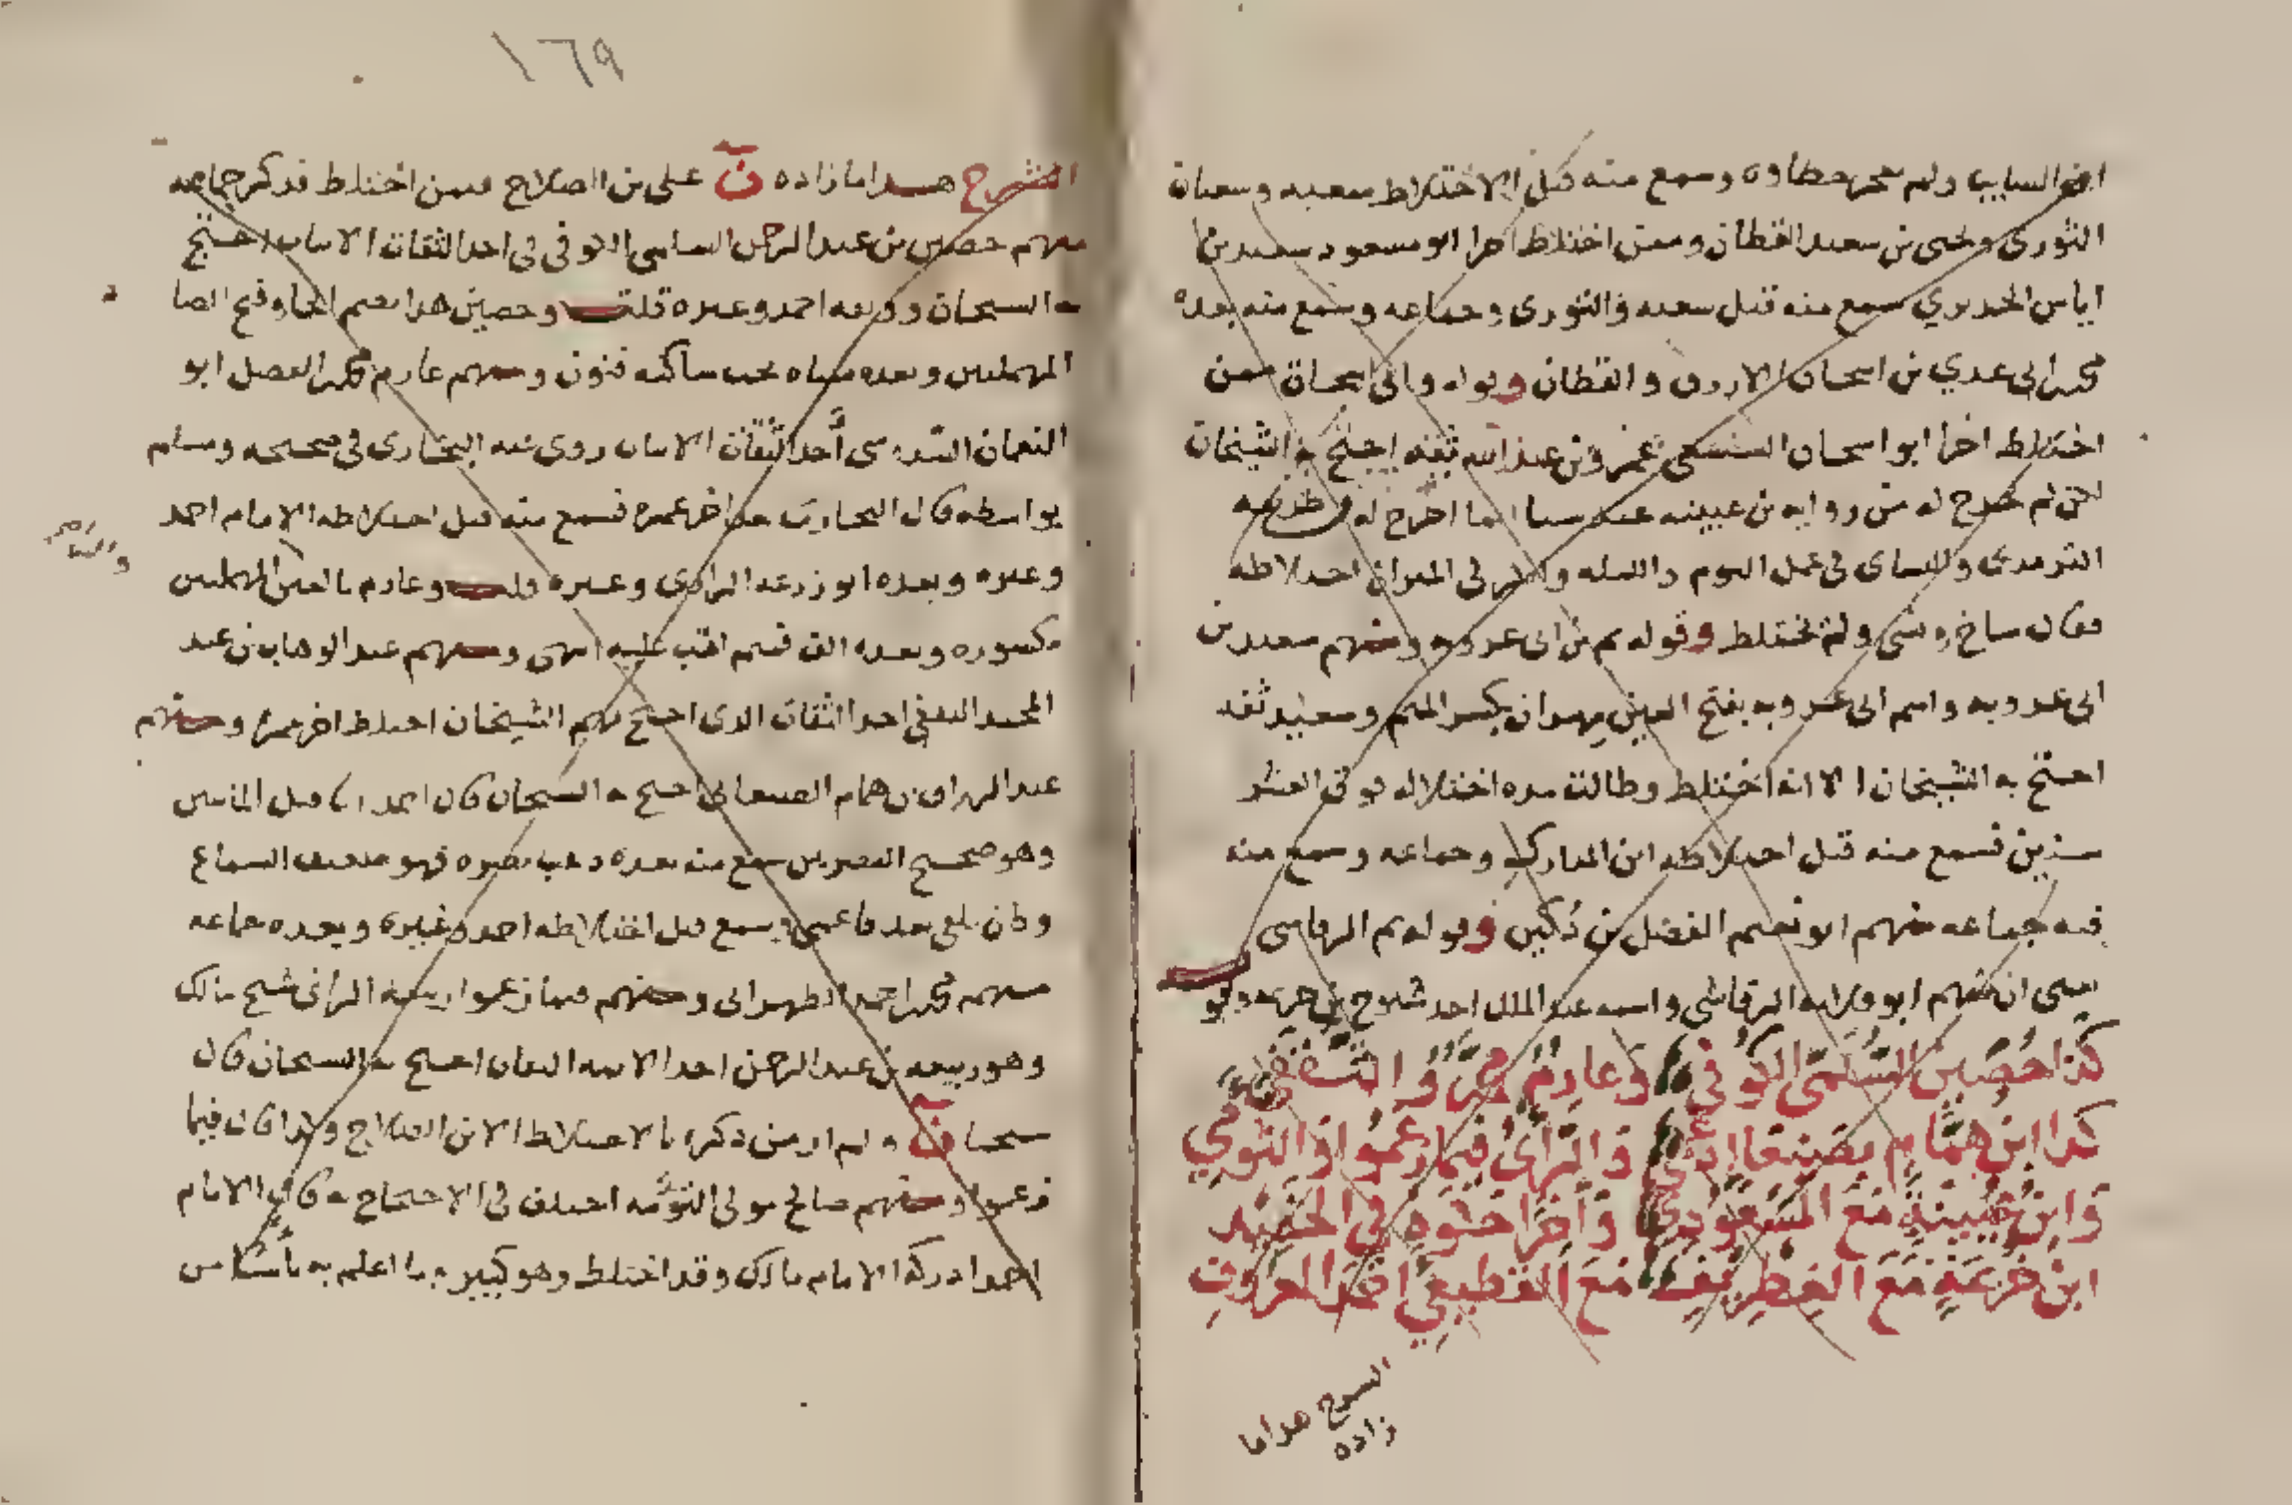 ابن السايب ولم بحر حطاوه وسمع منه قبل الاختلاط سعبه وسعيان
الثورى ويحيى بن سعيد القطان وممن اختلط اخرا ابو مسعود سعيد بن
اياس الجريري سمع منه قبل سعبه والثورى وجماعه وسمع منه بعده
محمد بن ابى عدي بن اسحاق الازرق والقطان وقوله وابى اسحاق ممن
اختلط اخرا ابو اسحاق السبيعى عمرو بن عبد الله ثقه احتج به الشيخان
لكن لم يخرج له من رواية بن عيينه عنه سيا انما اخرج له من طريقه
الترمدى والنساى فى عمل اليوم والليله وانكر فى الميزان اختلاطه
فقال ساخ ونسى ولم يختلط وقوله ثم بن ابى عروبه ومنهم سعيد بن
ابى عروبه واسم ابى عروبه بفتح العين مهران بكسر الميم وسعيد ثقه
احتج به الشيخان الا انه اختلط وطالت مده اختلاله فوق العشر
سنين فسمع منه قبل اختلاطه ابن المبارك وجماعه وسمع منه
فيه جماعه منهم ابو نعيم الفضل بن دكين وقوله ثم الرقاشى
يعنى ان منهم ابو قلابه الرقاشى واسمه عبد الملك احد شيوخ بن خزيمه
كَذَا حُصَيْنُ السُّلَمِيُّ الكُوفِي وَعَارِمٌ مُحَمَّدٌ وَالثَّقَفِي
كذا ابن همام بصنعا اذ عمي وَالرَّأيُ فيما زعموا والتوءمي
وَابن عُيَيْنَةٍ مَعَ المَسْعُودِي وَآخِرًا حَكَوْهُ في الحَفِيدِ
ابن خُزَيْمَةٍ مَعَ الغِطْرِيفِي مَعَ القَطِيعِي أَحْمَدَ المَعْرُوفِ
الشرح هدا ما
زاده
١٦٩
الشرح هدا ما زاده ن على بن الصلاح فيمن اختلط فذكر جماعه
منهم حصين بن عبد الرحمن السلمى الكوفى احد الثقات الاثبات احتج
به الشيخان ووثقه احمد وغيره قلت وحصين هدا بضم الحا وفتح الصا
المهملتين وبعده مثناه تحت ساكنه فنون ومنهم عارم محمد بن الفضل ابو
النعمان السدوسى أحد الثقات الاثبات روى عنه البخارى فى صحيحه ومسلم
بواسطه قال البخارى تغير اخر عمره فسمع منه قبل اختلاطه الامام احمد
وغيره وبعده ابو زرعه الرازى وغيره قلت وعارم بالعين المهمله
مكسوره وبعده الف فميم لقب عليه انتهى ومنهم عبد الوهاب بن عبد
المجيد الثقفى احد الثقات الدى احتج بهم الشيخان اختلط اخر عمره ومنهم
عبد الرزاق بن همام الصنعانى احتج به الشيخان قال احمد اتينا قبل الماتين
وهو صحيح البصر من سمع منه بعده دهب بصره فهو ضعيف السماع
وكان يلقن بعد ما عمى وسمع قبل اختلاطه احمد وغيره وبعده جماعه
منهم محمد بن احمد الطهرانى ومنهم فيما زعموا ربيعه الراى شيخ مالك
وهو ربيعه بن عبد الرحمن احد الايمه الثقات احتج به الشيخان قال
شيخنا ن ولم ار من ذكره بالاختلاط الا بن الصلاح ولدا قال فيما
زعموا ومنهم صالح مولى التوءمه اختلف فى الاحتجاج به قال الامام
احمد ادركه الامام مالك وقد اختلط وهو كبير ما اعلم به بأسا من